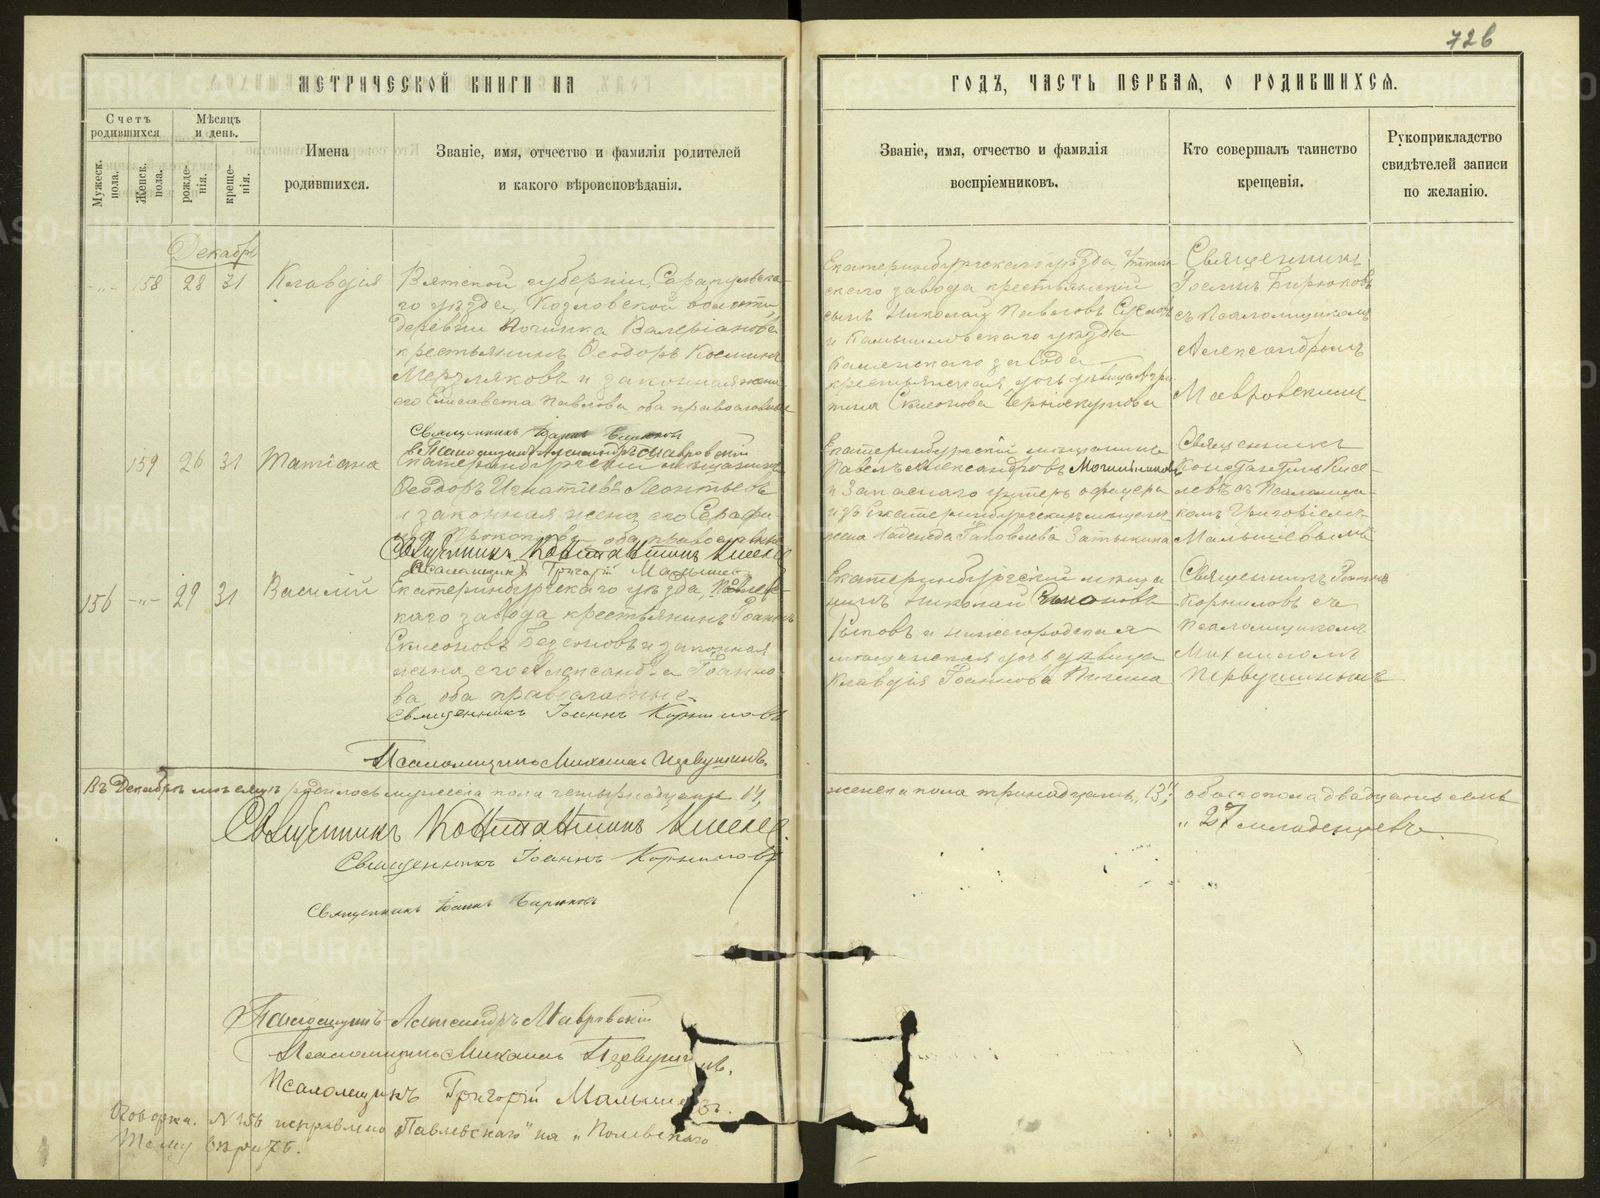 726
МЕТРИЧЕСКОЙ КНИГИ НА
ГОДЪ, ЧАСТЬ ПЕРВАЯ, О РОДИВШИХСЯ.
Счетъ родившихся
Мѣсяцъ и день.
Мужеск. пола.
Женск. пола.
рожденія.
крещенія.
Имена
родившихся.
Званіе, имя, отчество и фамилія родителей
и какого вѣроисповѣданія.
Званіе, имя, отчество и фамилія
воспріемниковъ.
Кто совершалъ таинство
крещенія.
Рукоприкладство
свидѣтелей записи
по желанію.
Декабрь
-"- 158 28 31 Клавдія
Вятской губерніи, Сарапульска-
го уѣзда, Козловской волости
деревни Починка
крестьянинъ Ѳеодоръ Косминъ
Мерзляковъ и законная жена
его Елисавета Павлова оба православные
Священникъ Іоаннъ Бирюковъ
Псаломщикъ Александръ Мавровскій
Екатеринбургскаго уѣзда,
скаго завода крестьянскій
сынъ Николай Павловъ
и Камышловскаго уѣзда
Каменскаго завода
крестьянская дочь дѣвица
Священникъ
Іоаннъ Бирюковъ
съ Псаломщикомъ
Александромъ
Мавровскимъ
159 26 31 Татіана
Екатеринбургскій мѣщанинъ
Ѳеодоръ Игнатіевъ Леонтьевъ
и законная жена его Серафи-
ма оба православные
Священникъ Константинъ Киселевъ
Псаломщикъ Григорій Малышевъ
Екатеринбургскій мѣщанинъ
Павелъ Александровъ
и Запаснаго унтеръ офицера
жена Надежда Іаковлева
Священникъ
Константинъ Кисе-
левъ съ Псаломщи-
комъ Григоріемъ
Малышевымъ
156 -"- 29 31 Василій
Екатеринбургскаго уѣзда,
каго завода крестьянинъ Іоаннъ
и законная
жена его Александра Іоанно-
ва оба православные
Священникъ Іоаннъ Корниловъ
Псаломщикъ Михаилъ Первушинъ.
Екатеринбургскій мѣща
нинъ Николай
и нижегородская
мѣщанская дочь дѣвица
Клавдія Іоаннова
Священникъ Іоаннъ
Корниловъ съ
Псаломщикомъ
Михаиломъ
Первушинымъ
Въ Декабрѣ мѣсяцѣ родилось мужеска пола четырнадцать 14,
женска пола тринадцать "13", обоего пола двадцать семь
"27" младенцевъ.
Священникъ Константинъ Киселевъ.
Священникъ Іоаннъ Корниловъ
Священникъ Іоаннъ Бирюковъ
Псаломщикъ Александръ Мавровскій
Псаломщикъ Михаилъ Первушинъ.
Псаломщикъ Григорій Малышевъ.
Оговорка. № 156 исправлено "Павлевскаго" на "Полевскаго"
Тому вѣрить.